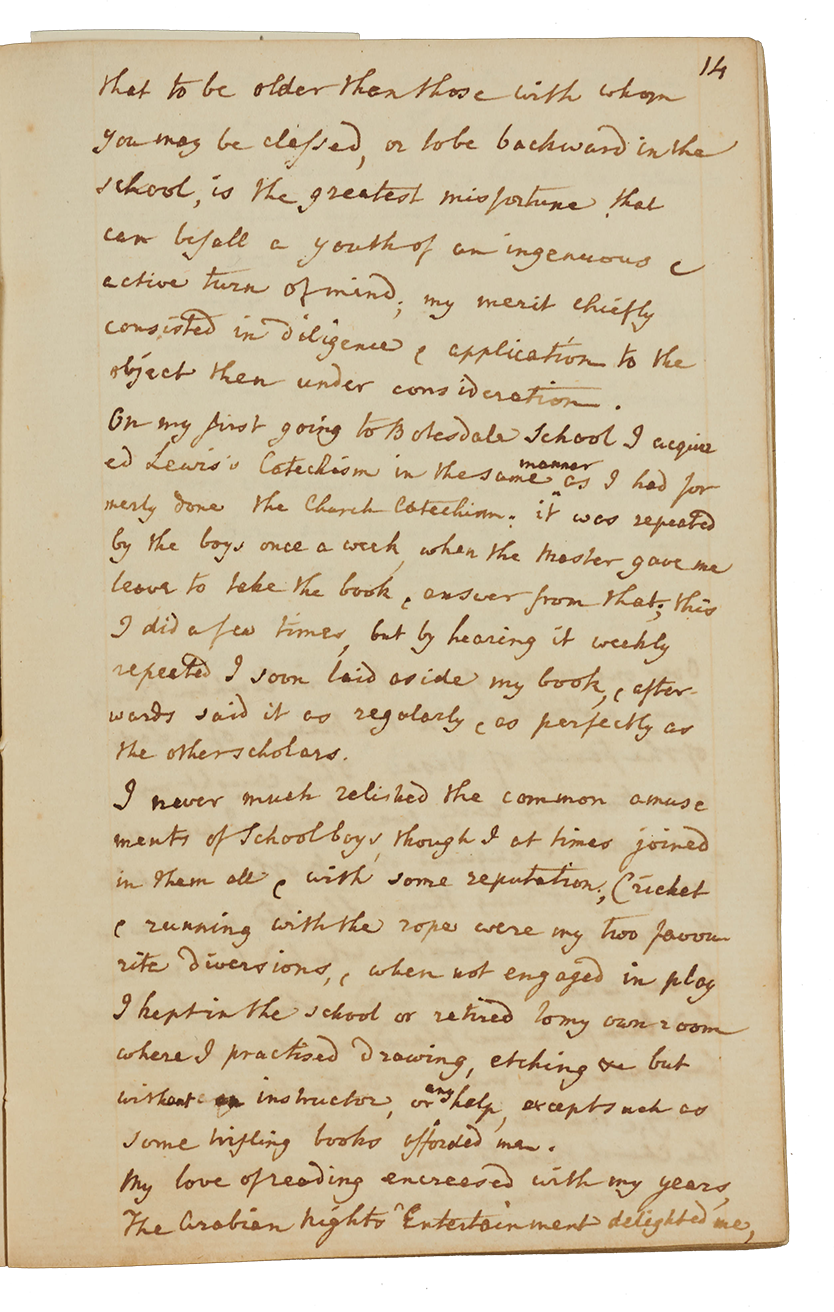 14
that to be older than those with whom
you may be classed, or to be backward in the
school, is the greatest misfortune that
can befall a youth of an ingenuous &
active turn of mind; my merit chiefly
consisted in diligence & application to the
object then under consideration.
On my first going to Botesdale School I acquir
ed Lewis's Catechism in the same manner as I had for
merly done the Church Catechism. it was repeated
by the boys once a week, when the Master gave me
leave to take the book & answer from that; this
I did a few times, but by hearing it weekly
repeated I soon laid aside my book, & after-
wards said it as regularly & as perfectly as
the other scholars.
I never much relished the common amuse
ments of School boys, though I at times joined
in them all & with some reputation; Cricket
& running with the rope were my two favou
rite diversions, & when not engaged in play
I kept in the school or retired to my own room
where I practised drawing, etching &c but
without an instructor, or any help, except such as
some trifling books afforded me.
My love of reading encreased with my years,
The Arabian Nights Entertainment delighted me,